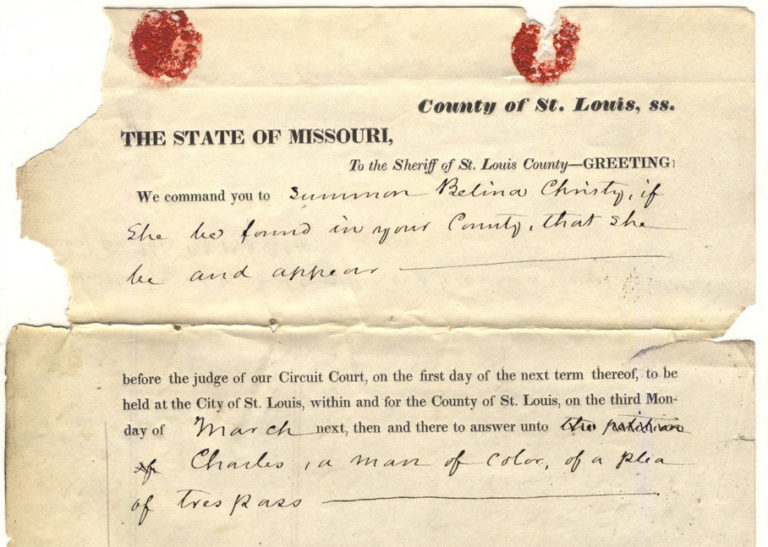 County of St. Louis, ss.
THE STATE OF MISSOURI,
To the Sheriff of St. Louis County—GREETING:
We command you to Summon Belina Christy, if
She be found in your County, that she
be and appear
before the judge of our Circuit Court, on the first day of the next term thereof, to be
held at the City of St. Louis, within and for the County of St. Louis, on the third Mon-
day of March next, then and there to answer unto the petition
of Charles, a man of color, of a plea
of trespass